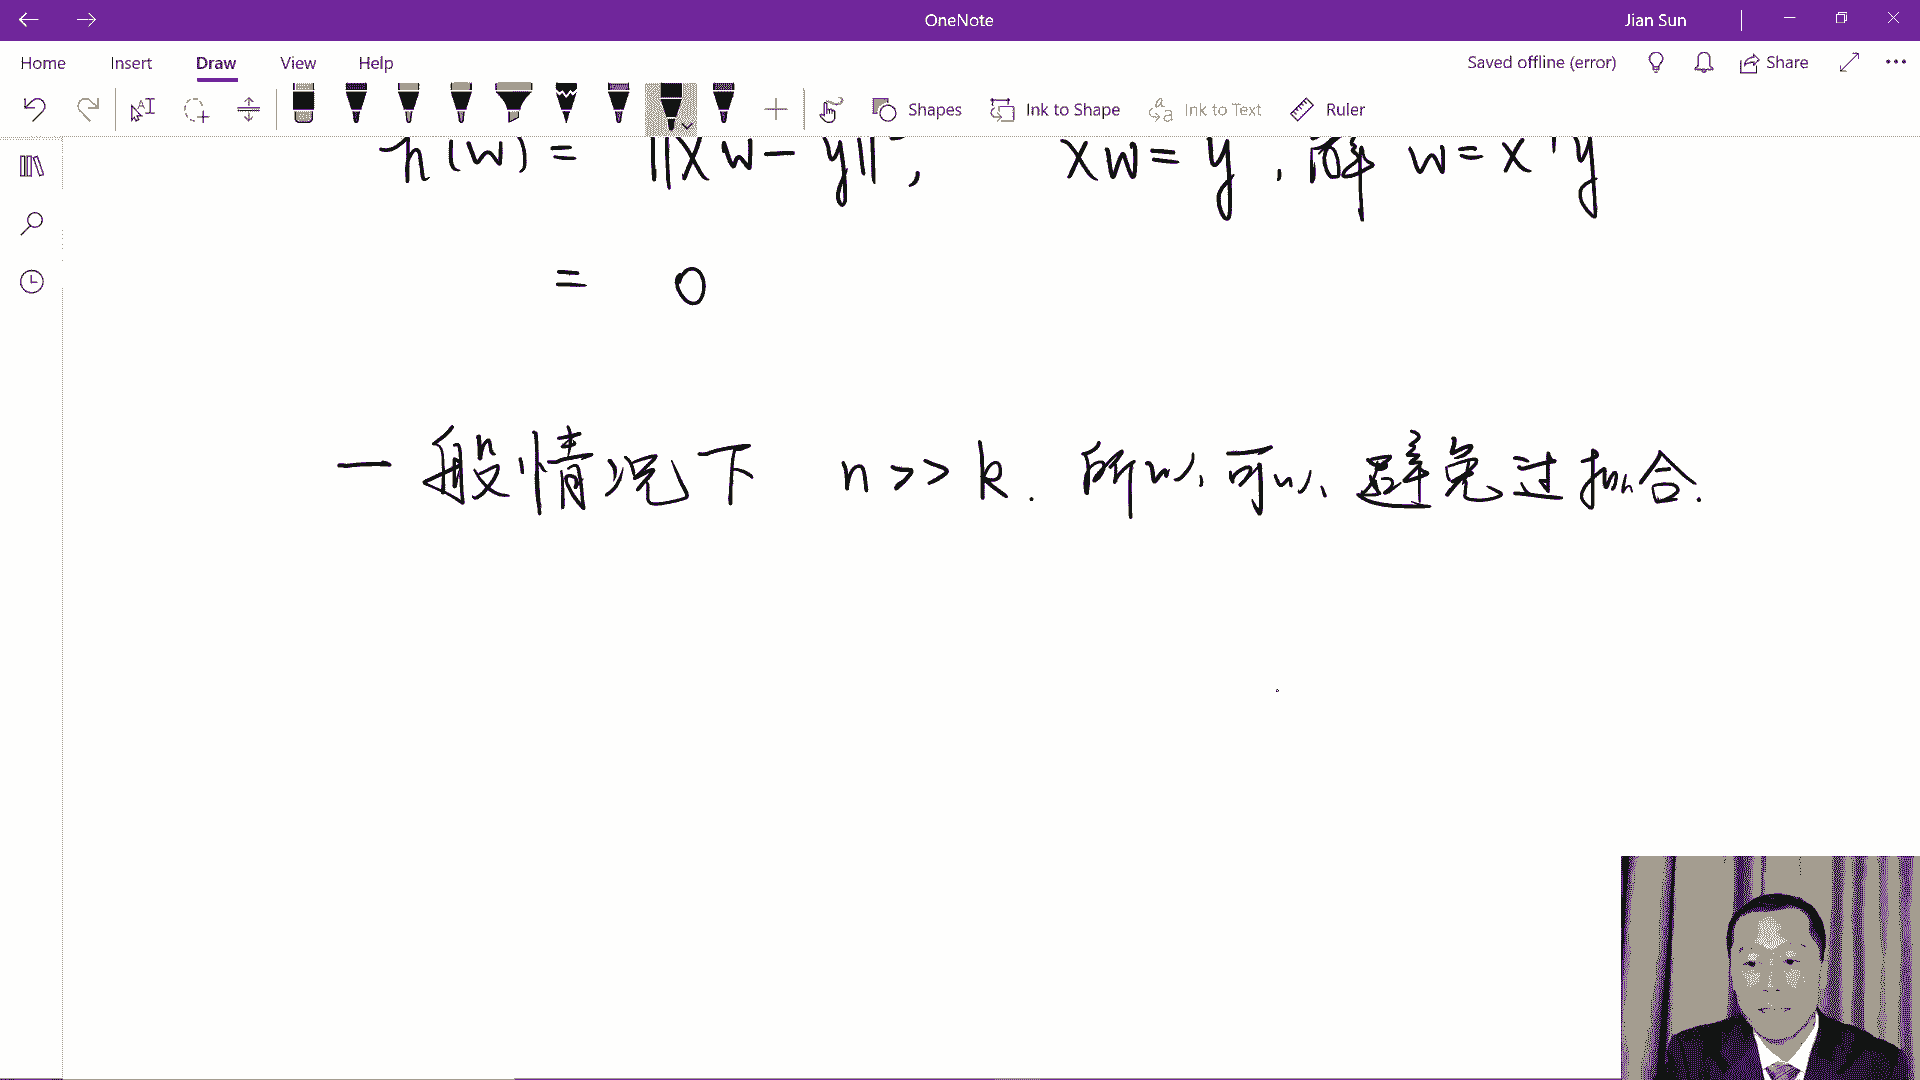 OneNote Jian Sun
Home Insert Draw View Help Saved offline (error) Share
Shapes Ink to Shape Ink to Text Ruler
h(w) = ||Xw - y||², Xw = y, 解 w = X⁻¹y
= 0
一般情况下 n >> k. 所以可以避免过拟合.